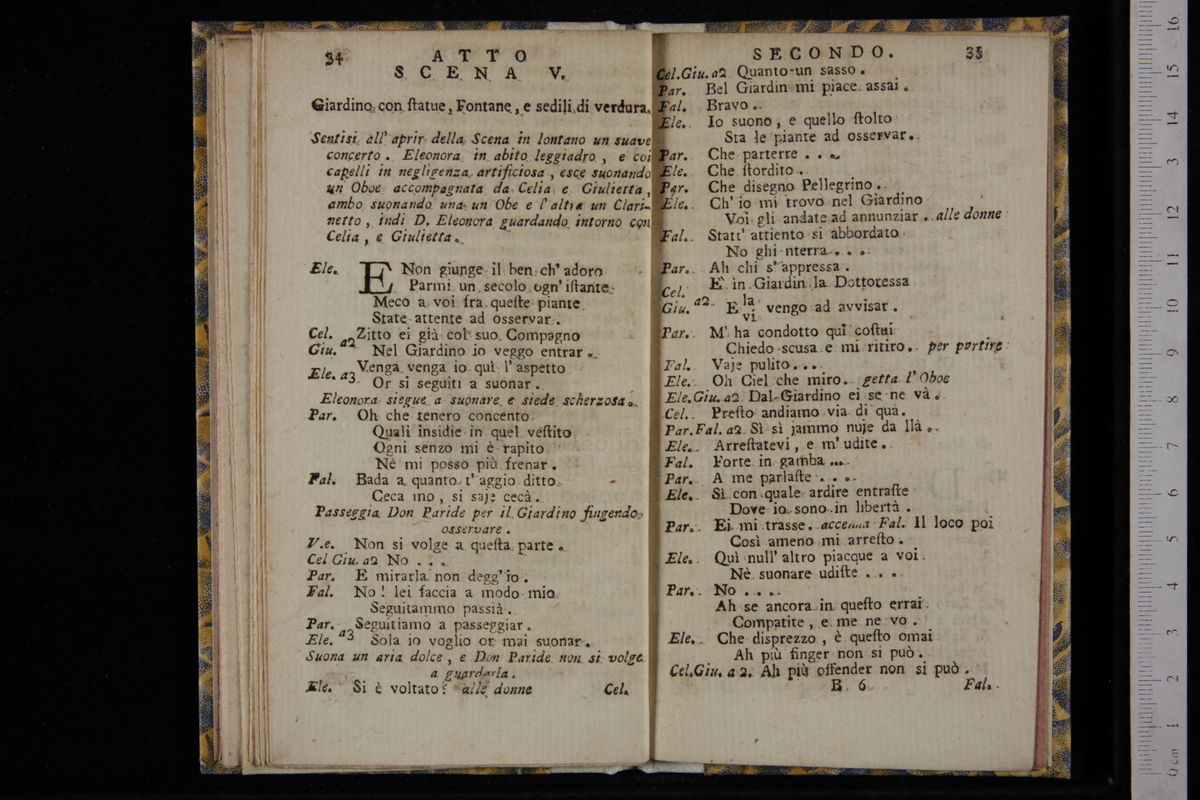 34
ATTO
SCENA V.
Giardino con ſtatue, Fontane, e sedili di verdura.
Sentisi all' aprir della Scena in lontano un suave
concerto. Eleonora in abito leggiadro, e coi
capelli in negligenza artificiosa, esce suonando
un Oboe accompagnata da Celia e Giulietta,
ambo suonando una un Obe e l' altra un Clari-
netto, indi D. Eleonora guardando intorno con
Celia, e Giulietta.
Ele. E Non giunge il ben ch' adoro
Parmi un secolo ogn' iſtante
Meco a voi fra queſte piante
State attente ad osservar.
Cel. Giu. a2 Zitto ei già col suo Compagno
Nel Giardino io veggo entrar.
Ele. a3 Venga venga io quì l' aspetto
Or si seguiti a suonar.
Eleonora siegue a suonare e siede scherzosa.
Par. Oh che tenero concento
Quali insidie in quel veſtito
Ogni senzo mi è rapito
Nè mi posso più frenar.
Fal. Bada a quanto t' aggio ditto
Ceca mo, si saje cecà.
Passeggia Don Paride per il Giardino fingendo
osservare.
V.e. Non si volge a queſta parte.
Cel Giu. a2 No . . .
Par. E mirarla non degg' io.
Fal. No! lei faccia a modo mio
Seguitammo passià.
Par. Seguitiamo a passeggiar.
Ele. a3 Sola io voglio or mai suonar.
Suona un aria dolce, e Don Paride non si volge
a guardarla.
Ele. Si è voltato? alle donne
Cel.
SECONDO.
35
Cel.Giu. a2 Quanto un sasso.
Par. Bel Giardin mi piace assai.
Fal. Bravo.
Ele. Io suono, e quello ſtolto
Sta le piante ad osservar.
Par. Che parterre . . .
Ele. Che ſtordito.
Par. Che disegno Pellegrino.
Ele. Ch' io mi trovo nel Giardino
Voi gli andate ad annunziar. alle donne
Fal. Statt' attiento si abbordato
No ghi nterra . . .
Par. Ah chi s' appressa.
Cel. Giu. a2 E' in Giardin la Dottoressa
E la vi vengo ad avvisar.
Par. M' ha condotto quì coſtui
Chiedo scusa e mi ritiro. per partire
Fal. Vaje pulito . . .
Ele. Oh Ciel che miro. getta l' Oboe
Ele.Giu. a2 Dal Giardino ei se ne và.
Cel. Preſto andiamo via di quà.
Par.Fal. a2 Sì sì jammo nuje da llà.
Ele. Arreſtatevi, e m' udite.
Fal. Forte in gamba ...
Par. A me parlaſte . . .
Ele. Sì con quale ardire entraſte
Dove io sono in libertà.
Par. Ei mi trasse. accenna Fal. Il loco poi
Così ameno mi arreſto.
Ele. Quì null' altro piacque a voi
Nè suonare udiſte . . .
Par. No . . .
Ah se ancora in queſto errai
Compatite, e me ne vo.
Ele. Che disprezzo, è queſto omai
Ah più finger non si può.
Cel.Giu. a 2. Ah più offender non si può.
B 6
Fal.